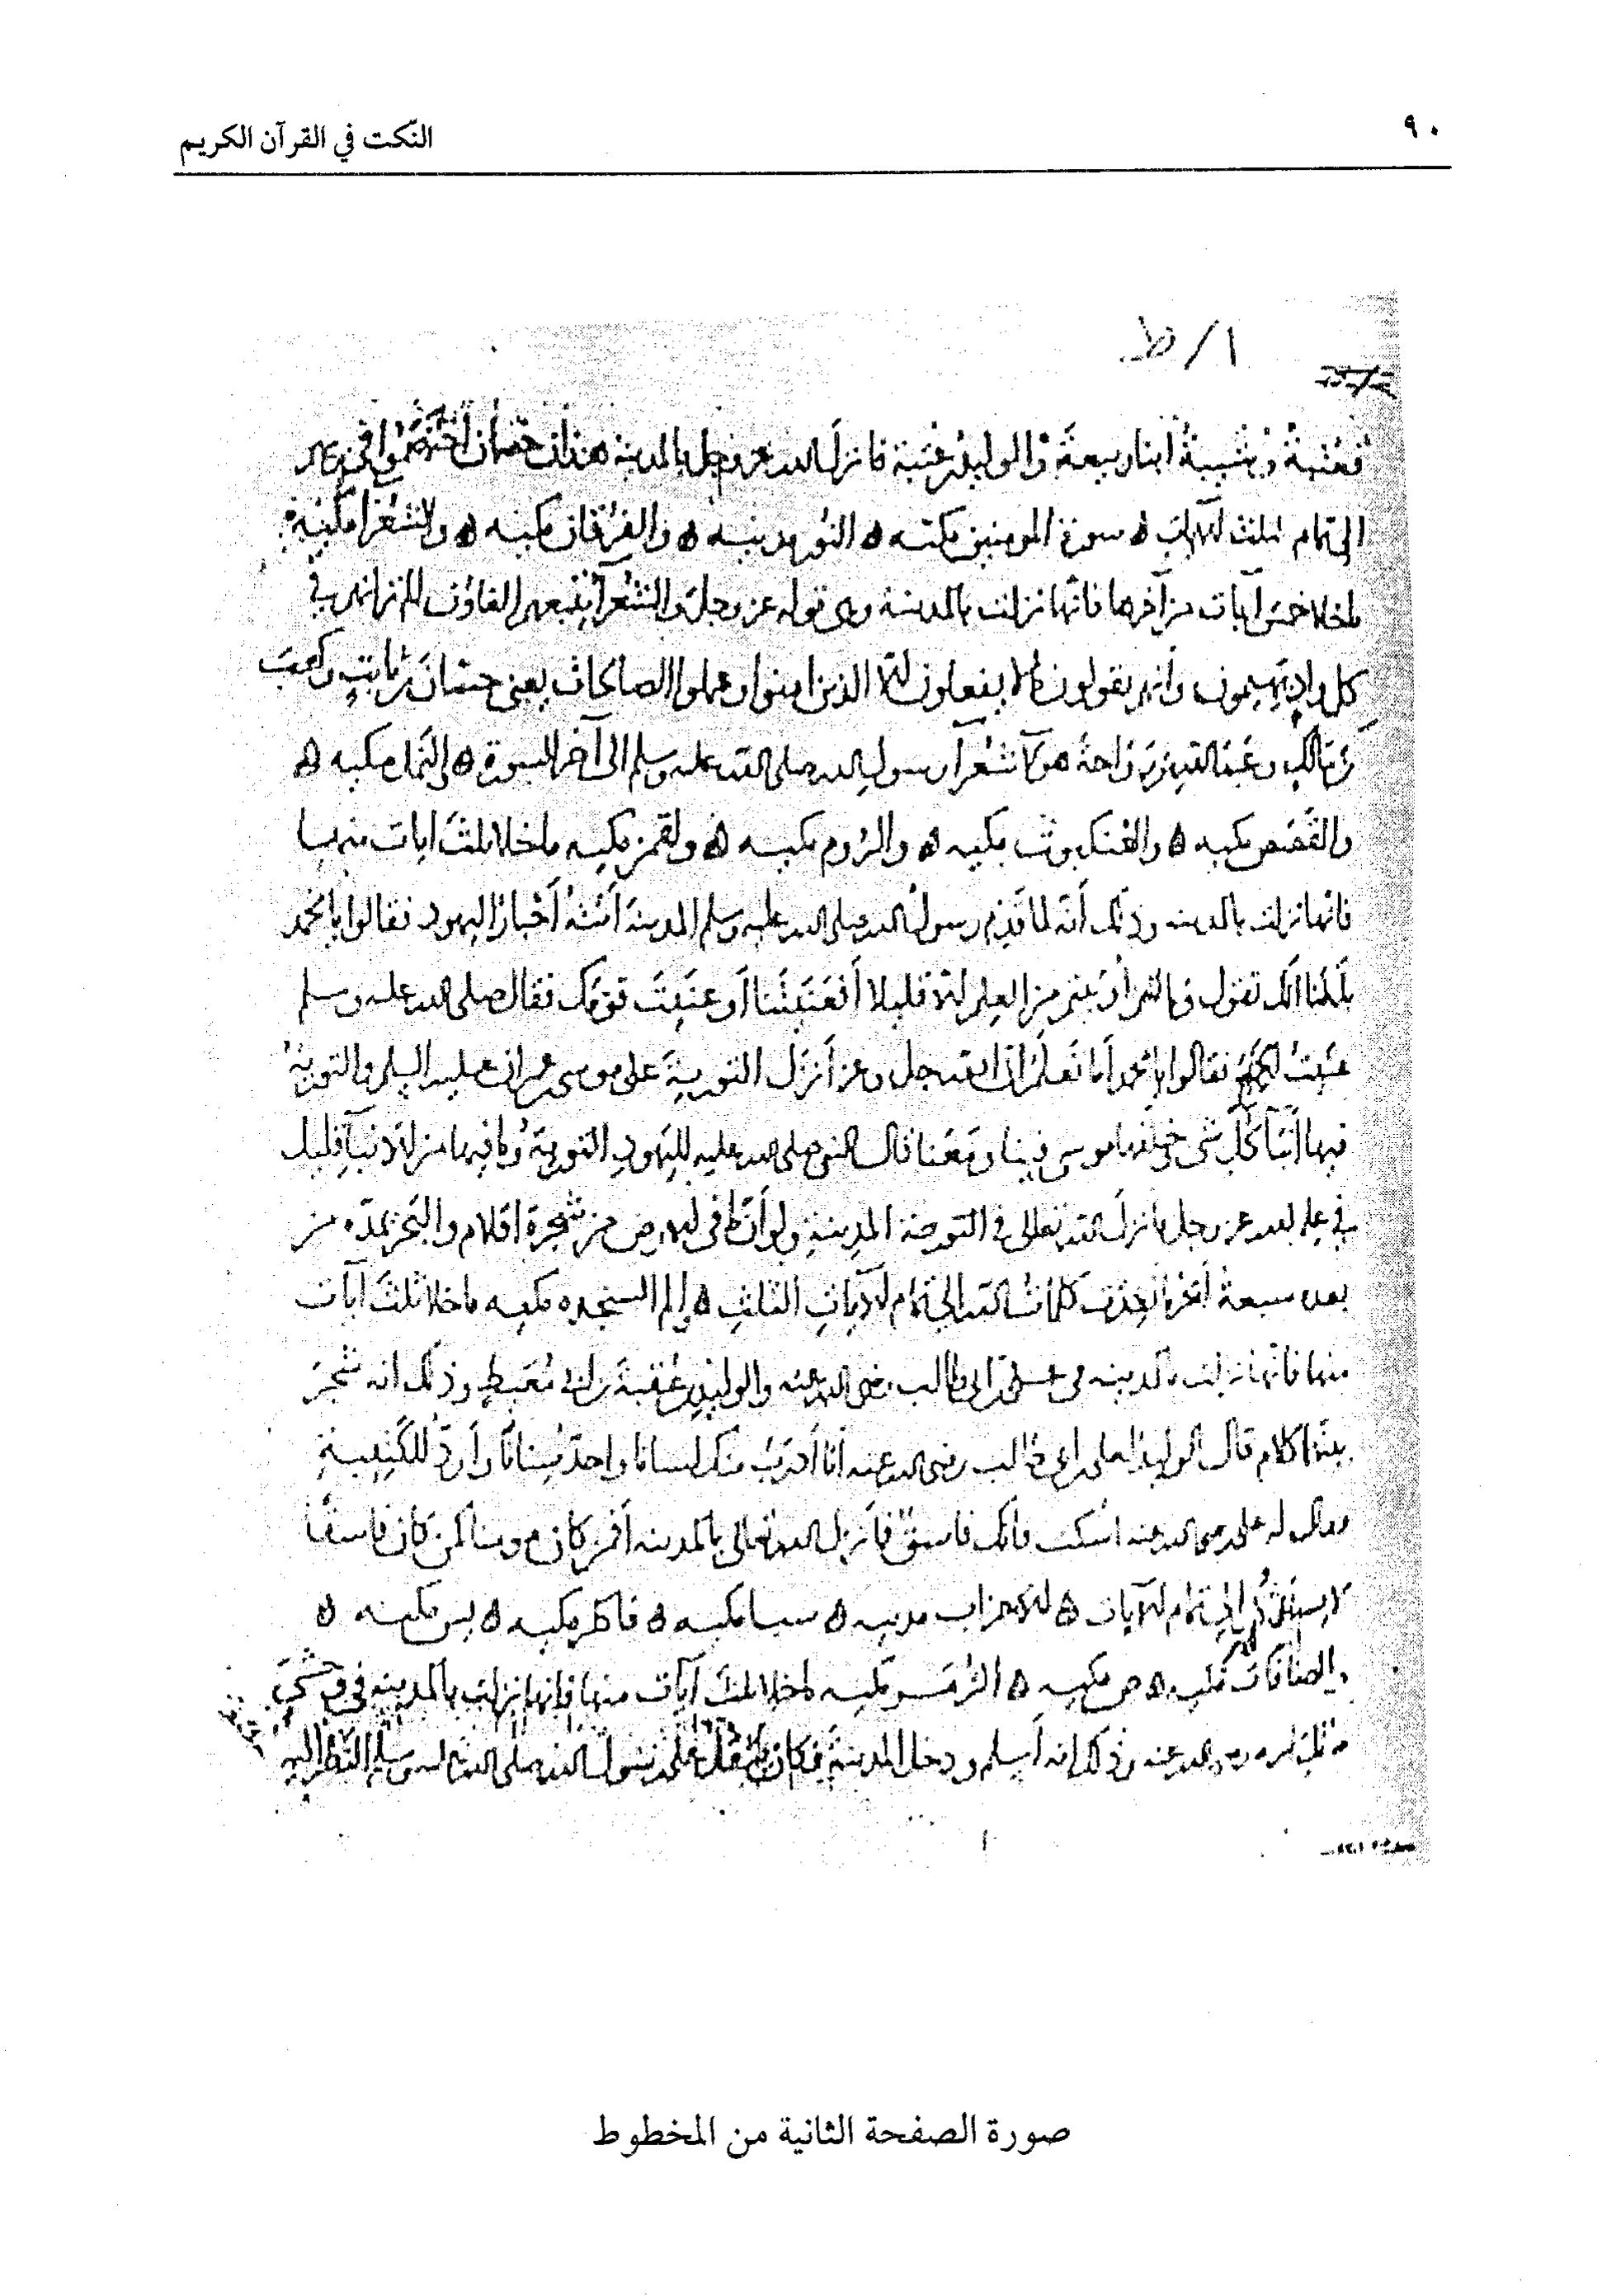 ٩٠
النّكت في القرآن الكريم
١/ظ
فعُتبة وشَيبةُ ابنا ربيعةَ والوليد بن عتبة فانزلَ الله عز وجل بالمدينة هذان خصمان اختصموا في ربهم
الى تمام الثلث الايات ه سورة المومنين مكيه ه النور مدنيه ه والفرقان مكيه ه والشعرا مكية
ما خلا خمس آيات من آخرها فانها نزلت بالمدينة وهى قوله عز وجل والشعرآ يتبعهم الغاوون الم تر انهم في
كل واد يهيمون وأنهم يقولون ما لا يفعلون الا الذين امنوا وعملوا الصالحات يعنى حسّان بن ثابتٍ وكعبَ
بن مالك وعبد الله بن رَواحةَ هولآ شعرآ رسول الله صلى الله عليه وسلم الى آخر السورة ه النمل مكيه ه
والقصَص مكيه ه والعنكبوت مكيه ه والروم مكيه ه ولقمن مكيه ما خلا ثلثَ ايات منها
فانها نزلت بالمدينه وذلك أنه لما قدِم رسول الله صلى الله عليه وسلم المدينة أتته أحبارُ اليهود فقالوا يا محمد
بلغنا انك تقول وما اوتيتم من العلم الا قليلا أفعَنَيتَنا أو عنيتَ قومك فقال صلى الله عليه وسلم
عنيتُ الجميعَ فقالوا يا محمد أما تعلم أن الله جل وعز أنزل التوريةَ على موسى بن عمران عليه السلم والتورية
فيها انبآ كل شى خلفها موسى فينا ومَعَنا فقال النبى صلى الله عليه لليَهود التورية وما فيها من الانبآ قليل
في علم الله عز وجل فانزل الله تعالى في المدينة ولو أن ما في الارض من شجرة اقلام والبحر يمده من
بعده سبعة أبحر ما نفدت كلمات الله الى تمام الايات الثلث ه الم السجده مكيه ما خلا ثلثَ آيات
منها فانها نزلت بالمدينه في على بن ابى طالب رضى الله عنه والوليد بن عُقبةَ بن ابى مُعَيط وذلك انه شجر
بينهما كلام فقال الوليد لعلى بن ابى طالب رضى الله عنه أنا أذرَبُ منك لسانا واحدّ سِنانا وأردّ للكَتيبة
فقال له على رضى الله عنه اسكت فانك فاسق فأنزل الله تعالى بالمدينه أفمن كان مومنا كمن كان فاسقا
لا يستوون الى تمام الايات ه الاحزاب مدنيه ه سبا مكيه ه فاطر مكيه ه يس مكيه ه
والصافات مكيه ه ص مكيه ه الزمر مكيه ما خلا ثلث آيات منها فانها نزلت بالمدينه في وحشىّ
قاتل حمزه رضى الله عنه وذلك انه أسلم ودخل المدينة فكان يثقل على رسول الله صلى الله عليه وسلم النظر اليه
١
صورة الصفحة الثانية من المخطوط